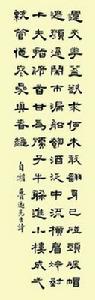 運交華蓋欲何求未敢翻身已碰頭破帽
遮顏過鬧市漏船載酒泛中流橫眉冷對
千夫指俯首甘為孺子牛躲進小樓成弌
統管他冬夏與春秋
自嘲 魯迅先生詩